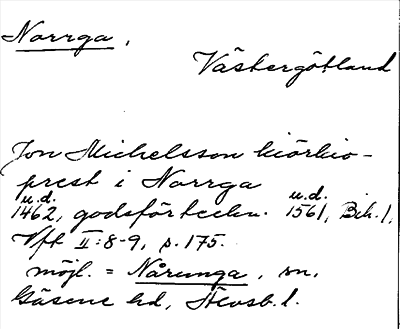 Norrga.
Västergötland
Jon Michelsson kiörkio-
prest i Norrga
u.d. u.d.
1462, godsförteckn. 1561, Bih. 1,
Vft II:8-9, s. 175.
möjl. = Nårunga, sn,
Gäsene hd, Älvsb. l.